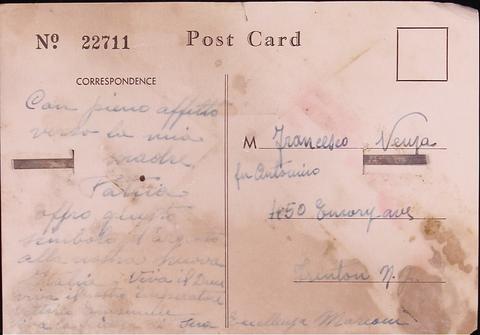 Nº 22711 Post Card
CORRESPONDENCE
Con pieno affetto
verso la mia
madre
Patria
offro questo
simbolo d'argento
alla nostra nuova
Italia Viva il Duce
viva il nostro Imperatore
Vittorio Emanuele
Sua Eccellenza Marconi
M Francesco Venza
fu Antonino
Emory ave
Trenton N.J.